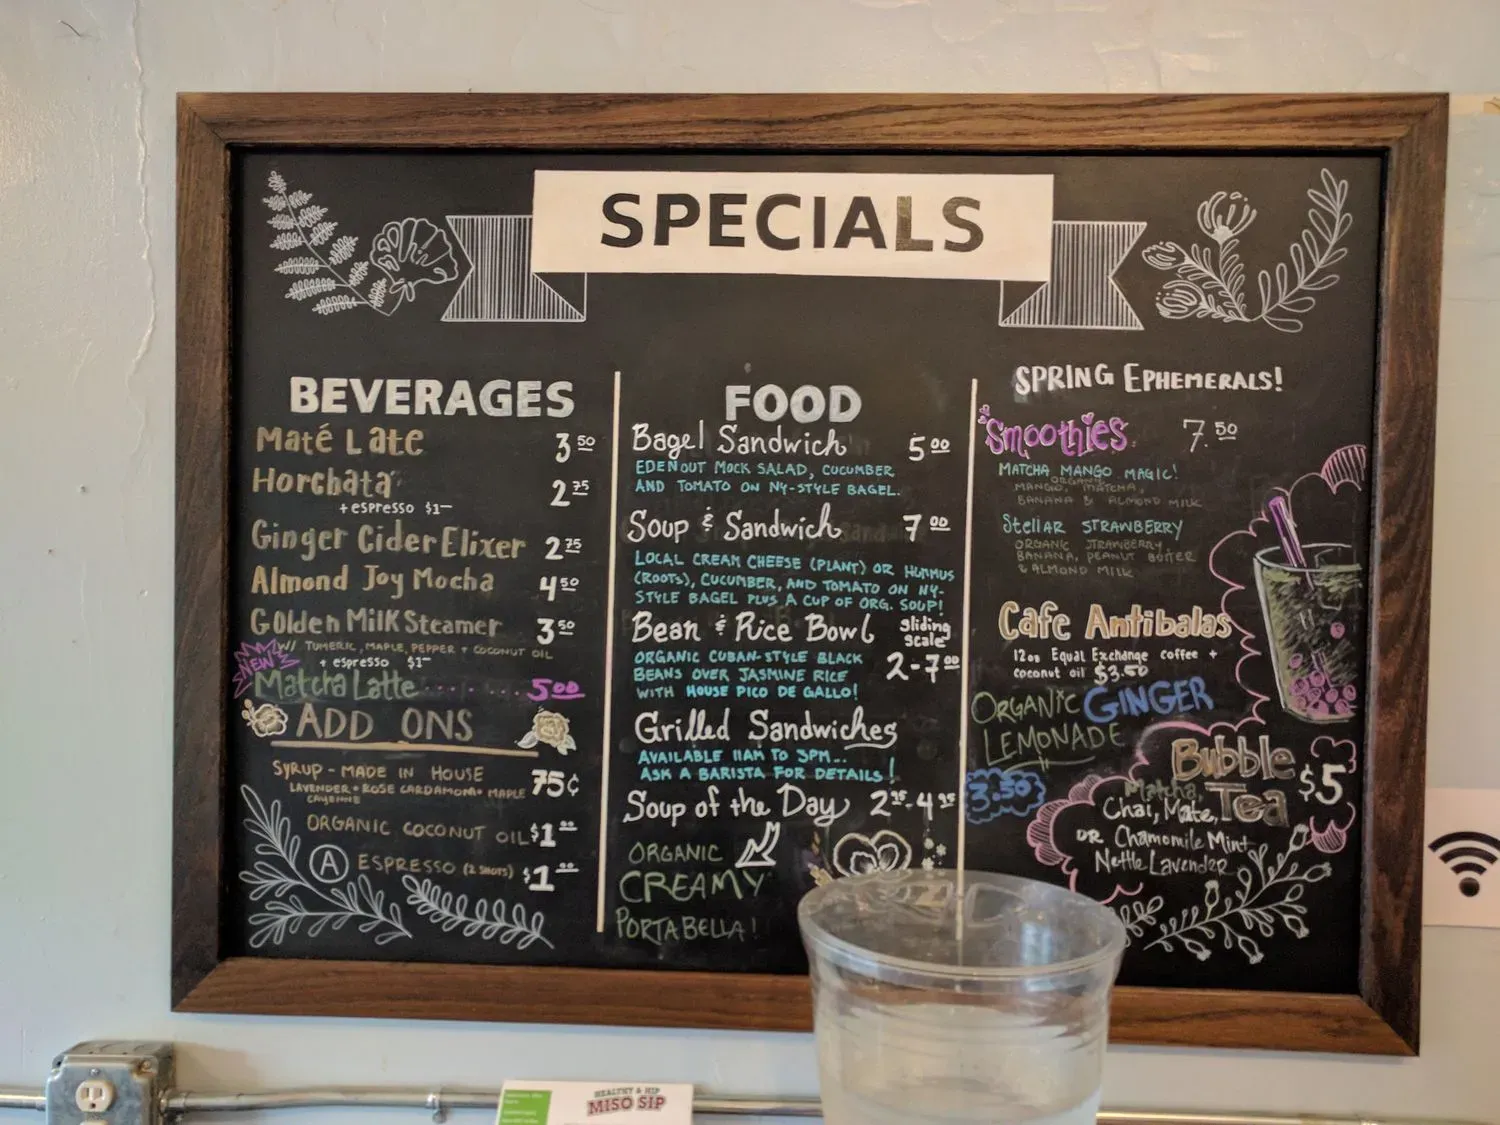 SPECIALS
BEVERAGES
Maté Late 3 50
Horchata 2 75
+ espresso $1—
Ginger Cider Elixer 2 75
Almond Joy Mocha 4 50
Golden Milk Steamer 3 50
W/ TUMERIC, MAPLE, PEPPER + COCONUT OIL
+ espresso $1—
NEW
Matcha Latte 5 00
ADD ONS
SYRUP - MADE IN HOUSE 75¢
LAVENDER • ROSE CARDAMOM • MAPLE
CAYENNE
ORGANIC COCONUT OIL $1
A ESPRESSO (2 SHOTS) $1
FOOD
Bagel Sandwich 5 00
EDEN OUT MOCK SALAD, CUCUMBER
AND TOMATO ON NY-STYLE BAGEL.
Soup & Sandwich 7 00
LOCAL CREAM CHEESE (PLANT) OR HUMMUS
(ROOTS), CUCUMBER, AND TOMATO ON NY-
STYLE BAGEL PLUS A CUP OF ORG. SOUP!
Bean & Rice Bowl sliding
scale
2-7 00
ORGANIC CUBAN-STYLE BLACK
BEANS OVER JASMINE RICE
WITH HOUSE PICO DE GALLO!
Grilled Sandwiches
AVAILABLE 11AM TO 3PM...
ASK A BARISTA FOR DETAILS!
Soup of the Day
ORGANIC
CREAMY
PORTABELLA!
SPRING EPHEMERALS!
Smoothies 7.50
MATCHA MANGO MAGIC!
ORGANIC
MANGO, MATCHA,
BANANA & ALMOND MILK
Stellar STRAWBERRY
ORGANIC STRAWBERRY
BANANA, PEANUT BUTTER
& ALMOND MILK
Cafe Antibalas
12oz Equal Exchange coffee +
coconut oil $3.50
ORGANIC GINGER
LEMONADE
3.50
Bubble
Tea $5
Matcha,
Chai, Mate,
OR Chamomile Mint
Nettle Lavender
HEALTHY & HIP
MISO SIP